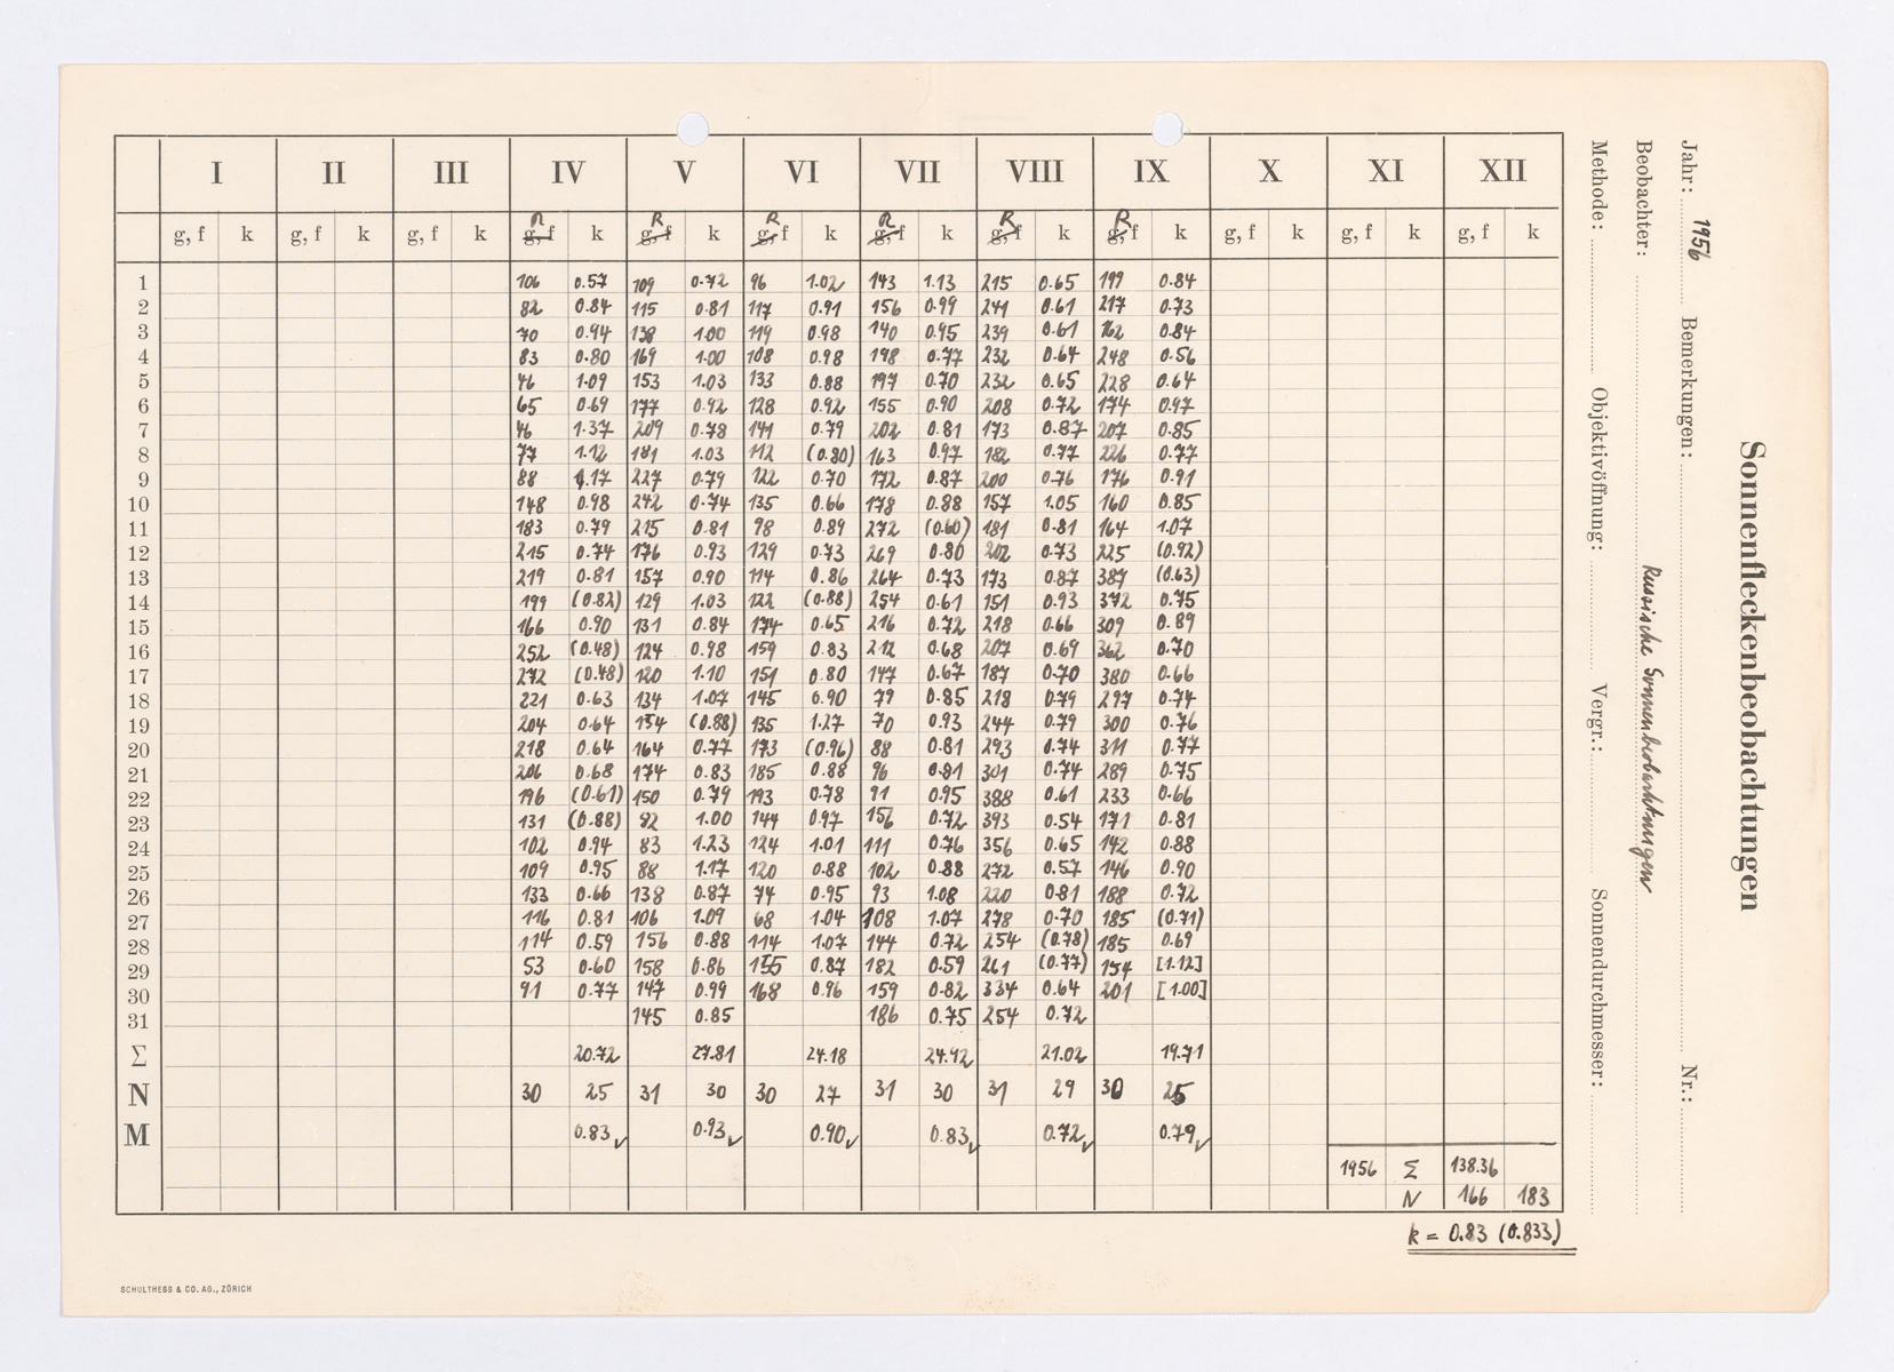 Sonnenfleckenbeobachtungen
Jahr: 1956 Bemerkungen: Nr.:
Beobachter: Russische Sonnenbeobachtungen
Methode: Objektivöffnung: Vergr.: Sonnendurchmesser:
I II III IV V VI VII VIII IX X XI XII
g, f k g, f k g, f k R g, f k R g, f k R g, f k R g, f k R g, f k R g, f k g, f k g, f k g, f k
1 106 0.57 109 0.72 96 1.02 143 1.13 215 0.65 199 0.84
2 82 0.84 115 0.81 117 0.91 156 0.99 241 0.61 217 0.73
3 70 0.94 138 1.00 119 0.98 140 0.95 239 0.61 162 0.84
4 83 0.80 169 1.00 108 0.98 198 0.77 232 0.64 248 0.56
5 46 1.09 153 1.03 133 0.88 197 0.70 232 0.65 228 0.64
6 65 0.69 177 0.92 128 0.92 155 0.90 208 0.72 174 0.97
7 46 1.37 209 0.78 141 0.79 202 0.81 173 0.87 207 0.85
8 77 1.12 181 1.03 112 (0.80) 163 0.97 182 0.77 226 0.77
9 88 1.17 227 0.79 122 0.70 172 0.87 200 0.76 176 0.91
10 148 0.98 242 0.74 135 0.66 178 0.88 157 1.05 160 0.85
11 183 0.79 215 0.81 98 0.89 272 (0.60) 181 0.81 164 1.07
12 215 0.74 176 0.93 129 0.73 269 0.80 202 0.73 225 (0.92)
13 219 0.81 157 0.90 114 0.86 264 0.73 173 0.87 387 (0.63)
14 199 (0.82) 129 1.03 122 (0.88) 254 0.61 151 0.93 372 0.75
15 166 0.90 131 0.84 174 0.65 216 0.72 218 0.66 309 0.89
16 252 (0.48) 124 0.98 159 0.83 212 0.68 207 0.69 362 0.70
17 272 (0.48) 120 1.10 151 0.80 147 0.67 187 0.70 380 0.66
18 221 0.63 134 1.07 145 0.90 79 0.85 218 0.79 297 0.74
19 204 0.64 154 (0.88) 135 1.27 70 0.93 244 0.79 300 0.76
20 218 0.64 164 0.77 173 (0.96) 88 0.81 293 0.74 311 0.77
21 206 0.68 174 0.83 185 0.88 96 0.81 301 0.74 289 0.75
22 196 (0.61) 150 0.79 193 0.78 91 0.95 388 0.61 233 0.66
23 131 (0.88) 92 1.00 144 0.97 156 0.72 393 0.54 171 0.81
24 102 0.94 83 1.23 124 1.01 111 0.76 356 0.65 142 0.88
25 109 0.95 88 1.17 120 0.88 102 0.88 272 0.57 146 0.90
26 133 0.66 138 0.87 74 0.95 93 1.08 220 0.81 188 0.72
27 116 0.81 106 1.09 68 1.04 108 1.07 278 0.70 185 (0.71)
28 114 0.59 156 0.88 114 1.07 144 0.72 254 (0.78) 185 0.69
29 53 0.60 158 0.86 155 0.87 182 0.59 261 (0.77) 154 [1.12]
30 91 0.77 147 0.99 168 0.96 159 0.82 334 0.64 201 [1.00]
31 145 0.85 186 0.75 254 0.72
Σ 20.72 27.81 24.18 24.92 21.02 19.71
N 30 25 31 30 30 27 31 30 31 29 30 25
M 0.83✓ 0.93✓ 0.90✓ 0.83✓ 0.72✓ 0.79✓
1956 Σ 138.36
N 166 183
k = 0.83 (0.833)
SCHULTHESS & CO. AG., ZÜRICH